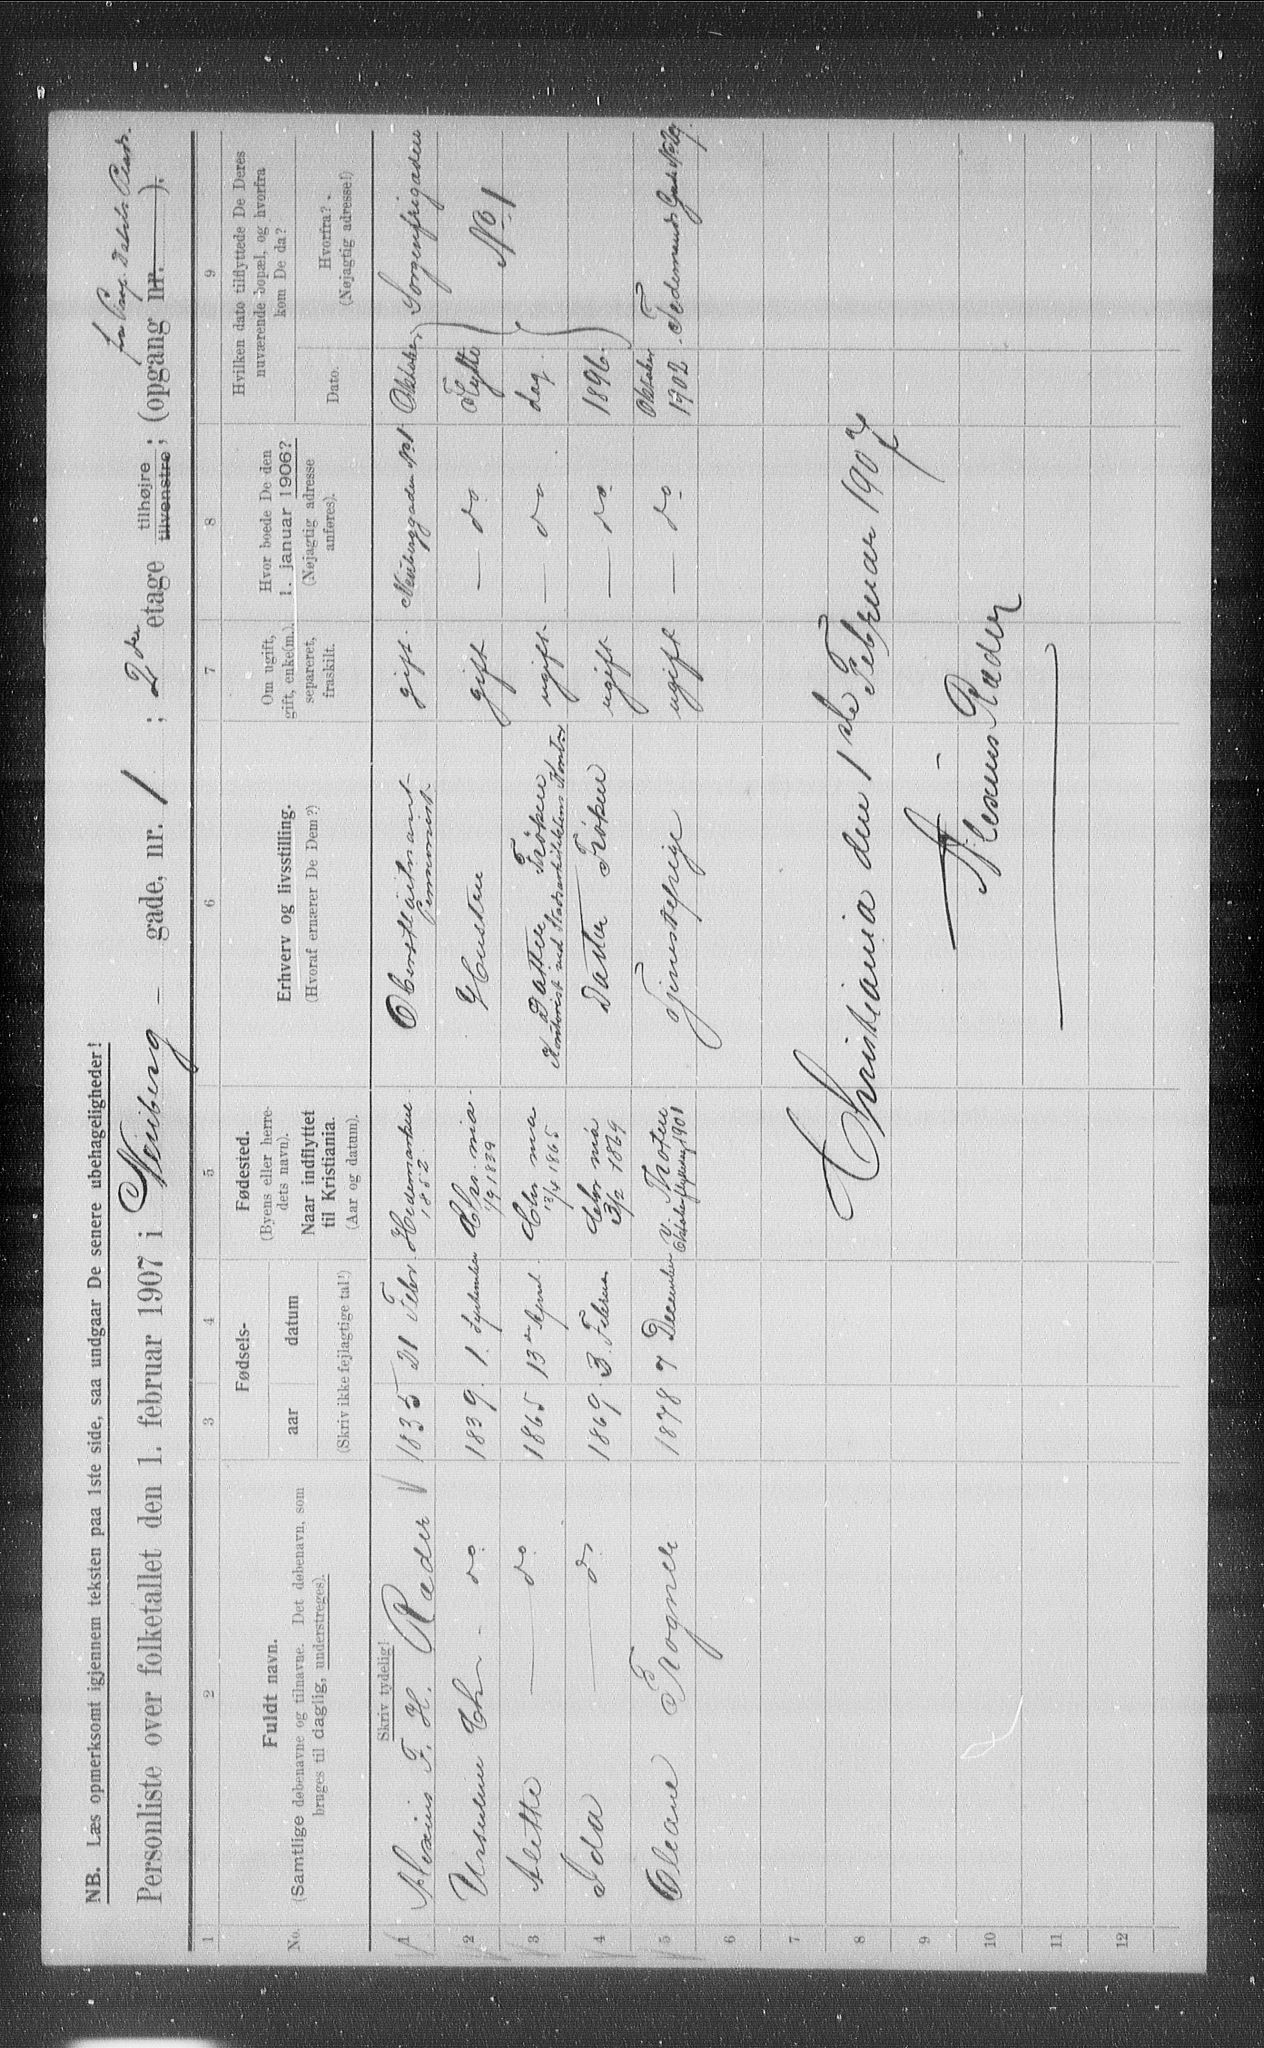 NB. Læs opmerksomt igjennem teksten paa 1ste side, saa undgaar De senere ubehageligheder!
Personliste over folketallet den 1. februar 1907 i Neuberg - gade, nr. 1 ; 2den etage tilhøjre tilvenstre; (opgang nr. ).
1 2 3 4 5 6 7 8 9
No.
Fuldt navn.
(Samtlige døbenavne og tilnavne. Det døbenavn, som
bruges til daglig, understreges).
Fødsels-
aar datum
(Skriv ikke fejlagtige tal!)
Fødested.
(Byens eller herre-
dets navn).
Naar indflyttet
til Kristiania.
(Aar og datum).
Erhverv og livsstilling.
(Hvoraf ernærer De Dem?)
Om ugift,
gift, enke(m.),
separeret,
fraskilt.
Hvor boede De den
1. januar 1906?
(Nøjagtig adresse
anføres).
Hvilken dato tilflyttede De Deres
nuværende bopæl, og hvorfra
kom De da?
Dato.
Hvorfra?
(Nøjagtig adresse!)
Skriv tydelig!
1 Alexius F. H. Ræder 1835 21 Febr. Hedemarken 1852 Oberstløitnant Pensionist gift Neuberggaden No 1 Oktober Sorgenfrigaden
2 Ursuline Chr - do 1839 1. September Chr.nia 1/9 1839 Hustru gift - do Flytte
3 Alette - do 1865 13de April Chr.nia 13/4 1865 Datter Frøken ugift - do dag No 1
Kontorist ved Stadsarkitektens Kontor
4 Ida - do 1869 3. Februar Chr.nia 3/2 1869 Datter Frøken ugift - do 1896
5 Oleane Frogner 1878 7 December V. Thoten Oktoberflytning 1901 Tjenestepige ugift - do Oktober 1902 Tidemands Gade
6
7
8
9
10
11
12
Christiania den 1ste Februar 1907
Alexius Ræder